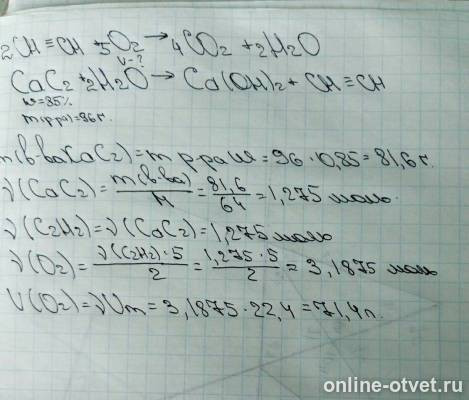 2CH≡CH + 5O₂ → 4CO₂ + 2H₂O
V-?
CaC₂ + 2H₂O → Ca(OH)₂ + CH≡CH
w=85%
m(р-ра)=96г.
m(в-ва CaC₂) = m р-ра·w = 96·0,85 = 81,6 г.
ν(CaC₂) = m(в-ва)/M = 81,6/64 = 1,275 моль.
ν(C₂H₂) = ν(CaC₂) = 1,275 моль
ν(O₂) = ν(C₂H₂)·5/2 = 1,275·5/2 = 3,1875 моль
V(O₂) = νVm = 3,1875·22,4 = 71,4 л.
online-otvet.ru